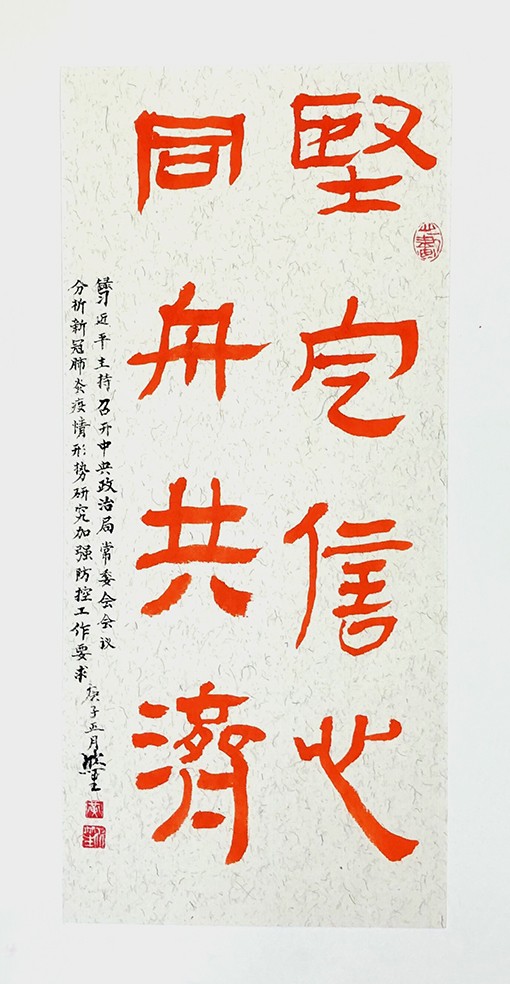 堅定信心
同舟共濟
錄习近平主持召开中央政治局常委会会议
分析新冠肺炎疫情形势研究加强防控工作要求
庚子正月